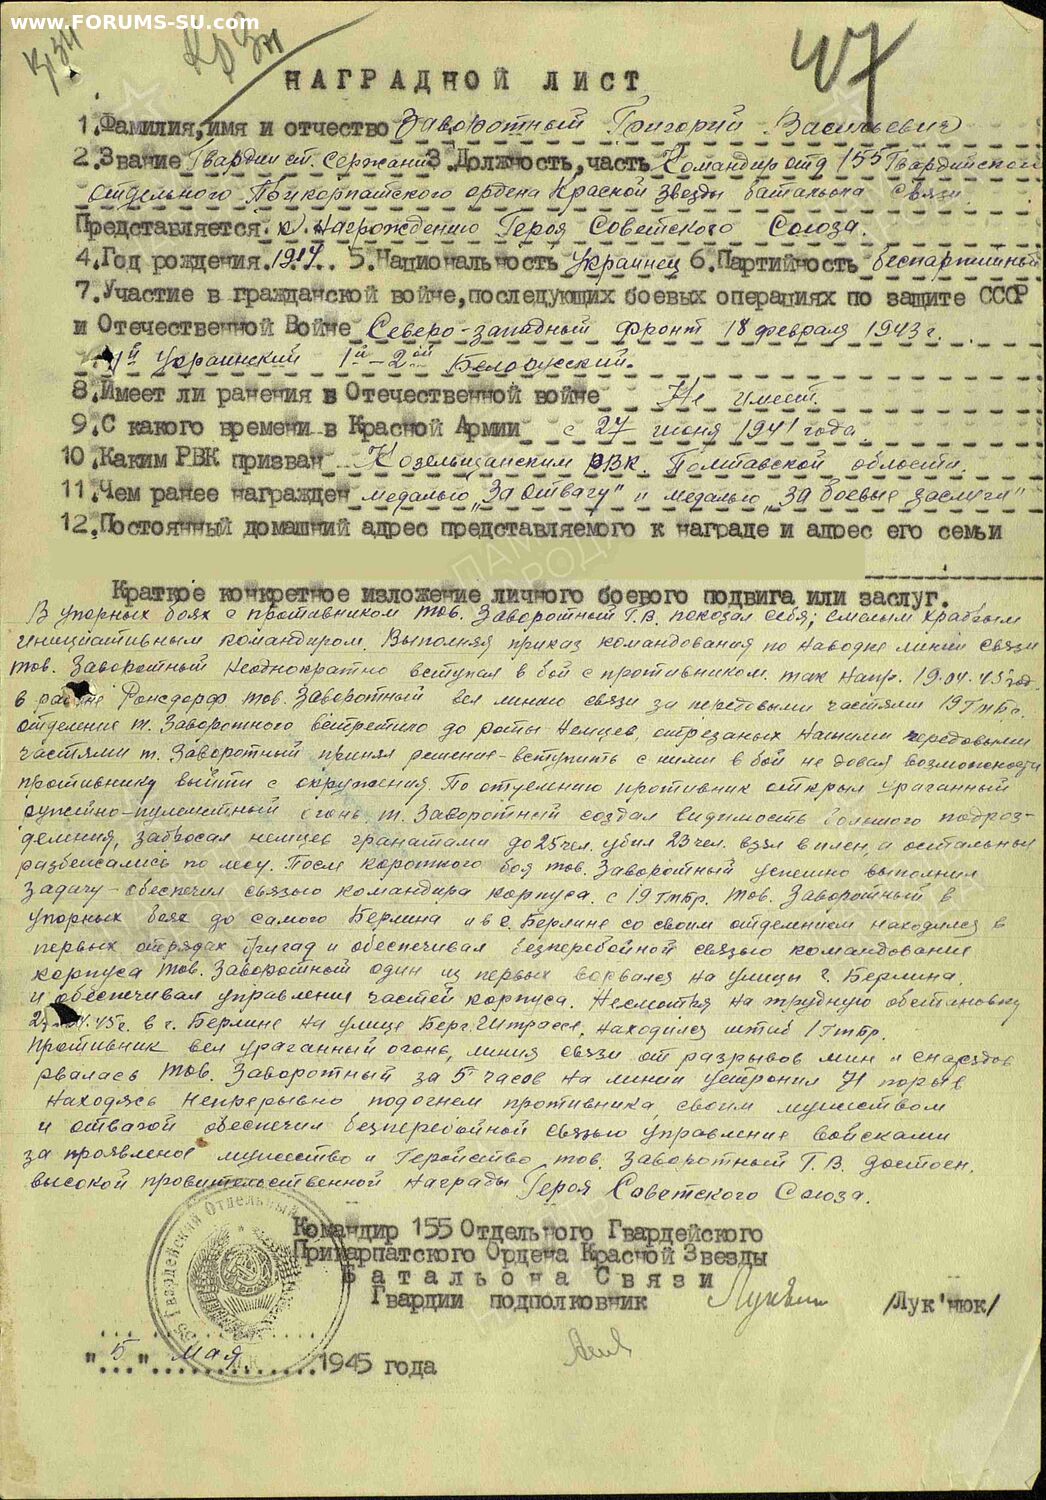 www.FORUMS-SU.com
47
НАГРАДНОЙ ЛИСТ
1.Фамилия,имя и отчество Заворотный Григорий Васильевич
2.Звание Гвардии ст. Сержант 3.Должность,часть Командир отд 155 Гвардейского
отдельного Прикарпатского ордена Красной Звезды батальона Связи
Представляется к награждению Героя Советского Союза.
4.Год рождения 1917 5.Национальность Украинец 6.Партийность беспартийный
7.Участие в гражданской войне,последующих боевых операциях по защите СССР
и Отечественной Войне Северо-западный фронт 18 февраля 1943 г.
Украинский 1й-2ой Белорусский.
8.Имеет ли ранения в Отечественной войне Не имеет
9.С какого времени в Красной Армии с 27 июня 1941 года
10.Каким РВК призван Козельщанским РВК. Полтавской области.
11.Чем ранее награжден медалью „За отвагу" и медалью „За боевые заслуги"
12.Постоянный домашний адрес представляемого к награде и адрес его семьи
Краткое конкретное изложение личного боевого подвига или заслуг.
В упорных боях с противником тов. Заворотный Г.В. показал себя, смелым храбрым
инициативным командиром. Выполняя приказ командования по наводке линии связи
тов. Заворотный неоднократно вступал в бой с противником. так напр. 19.04.45 год.
в районе Ронсдорф тов. Заворотный вел линию связи за передовыми частями 19 Гтбр.
отделение т. Заворотного встретило до роты немцев, отрезаных нашими передовыми
частями т. Заворотный принял решение-вступить с ними в бой не довая возможности
противнику выйти с окружения. По отделению противник открыл ураганный
ружейно-пулеметный огонь. т. Заворотный создал видимость большого подраз-
деления, забросал немцев гранатами до 25 чел. убил 23 чел. взял в плен, а остальные
разбежались по лесу. После короткого боя тов. Заворотный успешно выполнил
задачу-обеспечил связью командира корпуса. с 19 Гтбр. Тов. Заворотный в
упорных боях до самого Берлина и в г. Берлине со своим отделением находился в
первых отрядах бригад и обеспечивал безперебойной связью командование
корпуса тов. Заворотный один из первых ворвался на улицы г. Берлина.
и обеспечивал управление частей корпуса. Несмотря на трудную обстановку
45г. в г. Берлине на улице Берг. Штрассе, находился штаб 1 Гтбр.
Противник вел ураганный огонь, линия связи от разрывов мин и снарядов
рвалась тов. Заворотный за 5 часов на линии устранил 71 порыв
находясь непрерывно подогнем противника, своим мужеством
и отвагой обеспечил безперебойной связью управление войсками
за проявленое мужество и Геройство тов. Заворотный Г.В. достоен.
высокой правительственной награды Героя Советского Союза.
Командир 155 Отдельного Гвардейского
Прикарпатского Ордена Красной Звезды
Батальона Связи
Гвардии подполковник /Лук'янюк/
"5" мая 1945 года